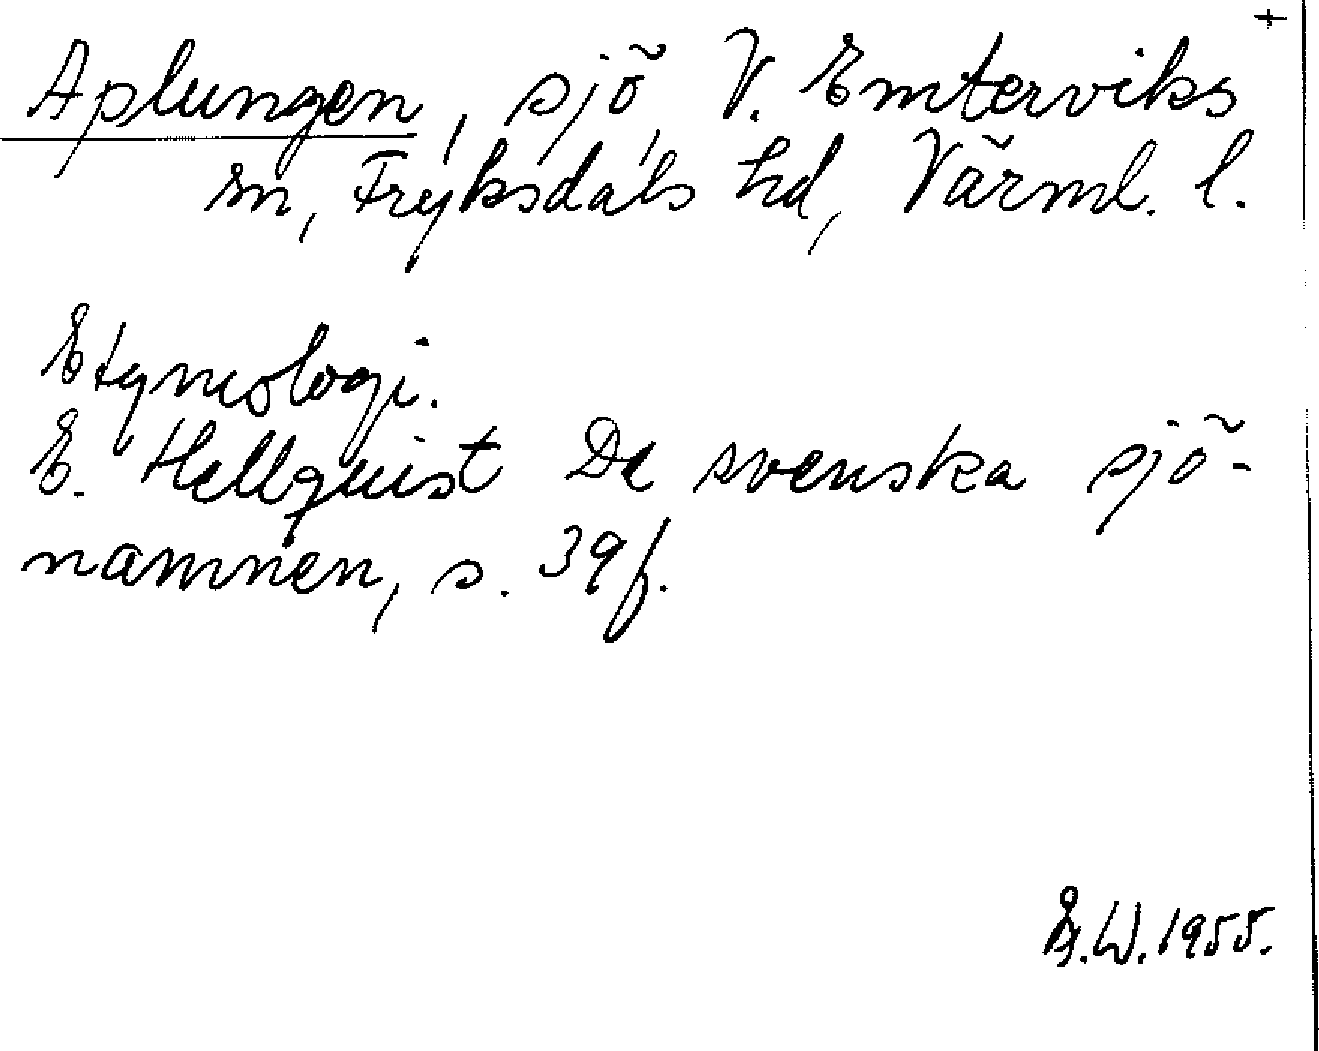 +
Aplungen, sjö, V. Emterviks
sn, Fryksdals hd, Värml. l.
Etymologi.
E. Hellquist De svenska sjö-
namnen, s. 39f.
E.W. 1955.